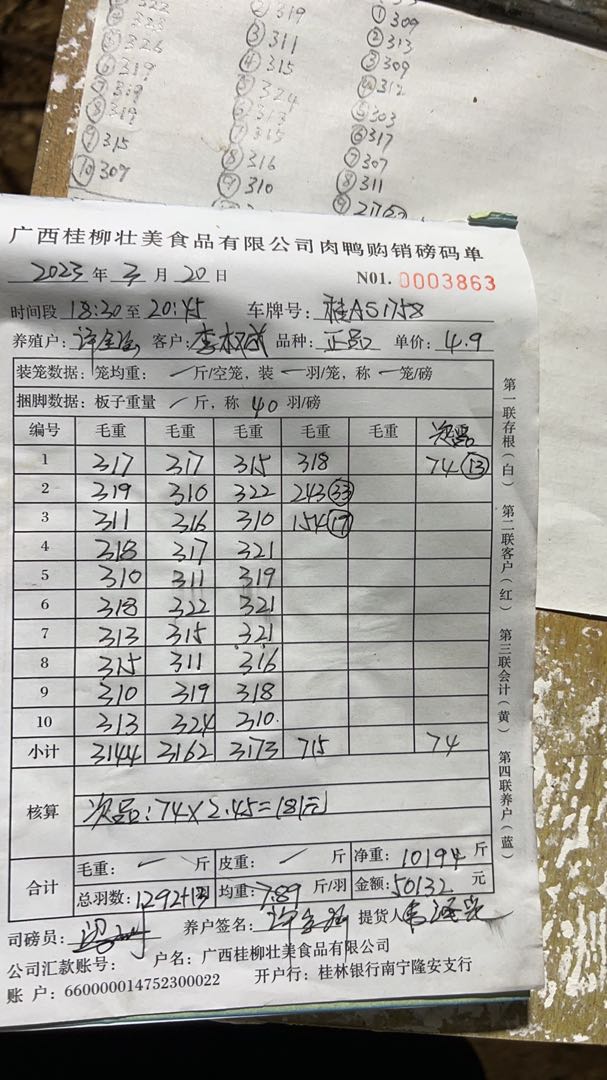 322 ② 319 ① 309
323 ③ 311 ② 313
⑤ 326 ④ 315 ③ 309
⑥ 319 ⑤ 324 ④ 312
⑥ 313 ⑤ 303
⑧ 319 ⑦ 315 ⑥ 317
⑨ 315 ⑧ 316 ⑦ 307
⑩ 307 ⑨ 310 ⑧ 311
广西桂柳壮美食品有限公司肉鸭购销磅码单
2023 年 3 月 20 日 N01. 0003863
时间段 18:30 至 20:45 车牌号: 桂AS1758
养殖户: 客户: 品种: 正品 单价: 4.9
装笼数据: 笼均重: 一 斤/空笼, 装 一 羽/笼, 称 一 笼/磅
捆脚数据: 板子重量 / 斤, 称 40 羽/磅
编号 毛重 毛重 毛重 毛重 毛重 次品
1 317 317 315 318 74 ⑬
2 319 310 322 243 ㉝
3 311 316 310 154 ⑰
4 318 317 321
5 310 311 319
6 318 322 321
7 313 315 321
8 315 311 316
9 310 319 318
10 313 324 310
小计 3144 3162 3173 715 74
核算 次品: 74×2.45=181元
合计 毛重: 一 斤 皮重: 一 斤 净重: 10194 斤
总羽数: 1292+13 均重: 7.89 斤/羽 金额: 50132 元
司磅员: 养户签名: 提货人
公司汇款账号: 户名: 广西桂柳壮美食品有限公司
账 户: 660000014752300022 开户行: 桂林银行南宁隆安支行
第一联存根(白) 第二联客户(红) 第三联会计(黄) 第四联养户(蓝)